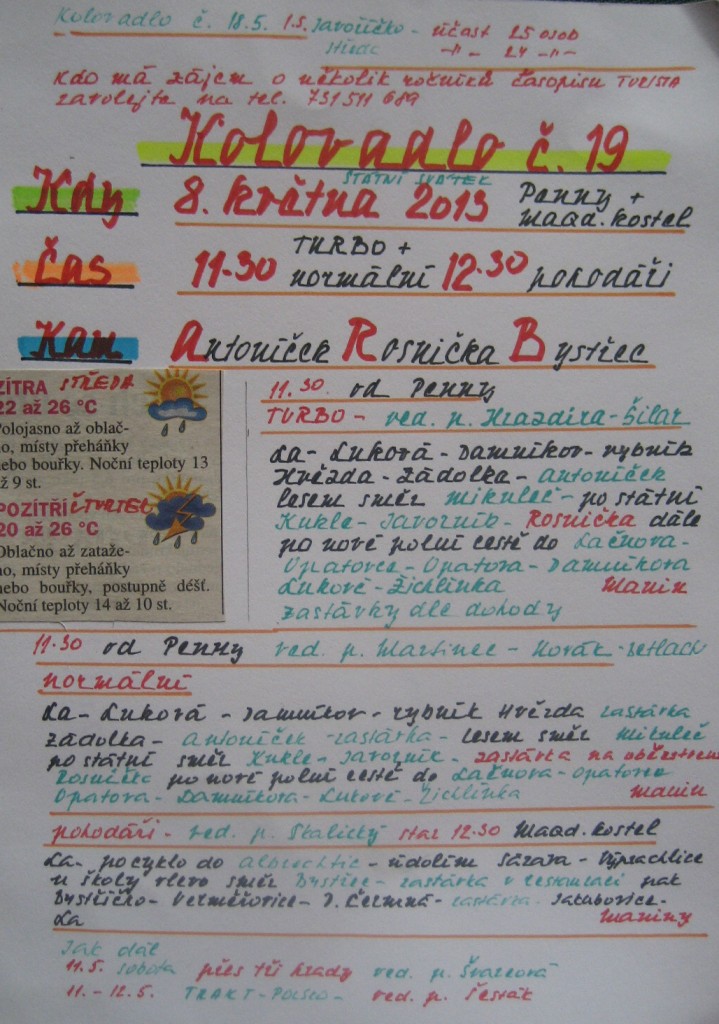 Kolovadlo č. 18. 5. 1.5. Javoříčko - účast 25 osob
středa -"- 24 -"-
Kdo má zájem o několik ročníků časopisu TURISTA
zavolejte na tel. 731511689
Kolovadlo č. 19
STÁTNÍ SVÁTEK
Kdy 8. května 2013 Penny +
Magd. kostel
Čas 11.30 TURBO +
normální 12.30 pohodáři
Kam Antoníček Rosnička Bystřec
ZÍTRA STŘEDA
22 až 26 °C
Polojasno až oblač-
no, místy přeháňky
nebo bouřky. Noční teploty 13
až 9 st.
POZÍTŘÍ ČTVRTEK
20 až 26 °C
Oblačno až zataže-
no, místy přeháňky
nebo bouřky, postupně déšť.
Noční teploty 14 až 10 st.
11.30. od Penny
TURBO - ved. p. Hrazdira - Šilar
La - Luková - Damníkov - rybník
Hvězda - Zádolka - Antoníček
lesem směr Mikuleč - po státní
Kukle - Javorník - Rosnička dále
po nové polní cestě do Lačnova -
Opatovce - Opatova - Damníkova
Lukové - Žichlínka Manin
zastávky dle dohody
11.30 od Penny ved. p. Martinec - Horák -
normální
La - Luková - Damníkov - rybník Hvězda zastávka
Zádolka - Antoníček - zastávka - lesem směr Mikuleč
po státní směr Kukle - Javorník - zastávka na občerstvení
Rosnička po nové polní cestě do Lačnova - Opatovce
Opatova - Damníkova - Lukové - Žichlínka Manin
pohodáři - ved. p. Skalický star 12.30 Magd. kostel
La - po cyklo do Albrechtic - údolím Sázava - Výprachtice
u školy vlevo směr Bystřec - zastávka v restauraci pak
Bystřičko - Verměřovice - D. Čermná - zastávka Jakubovice -
La Maniny
Jak dál
11.5. sobota přes tři hrady ved. p. Švarcová
11. - 12.5. TRAKT - POLSKO - ved. p. Šesták